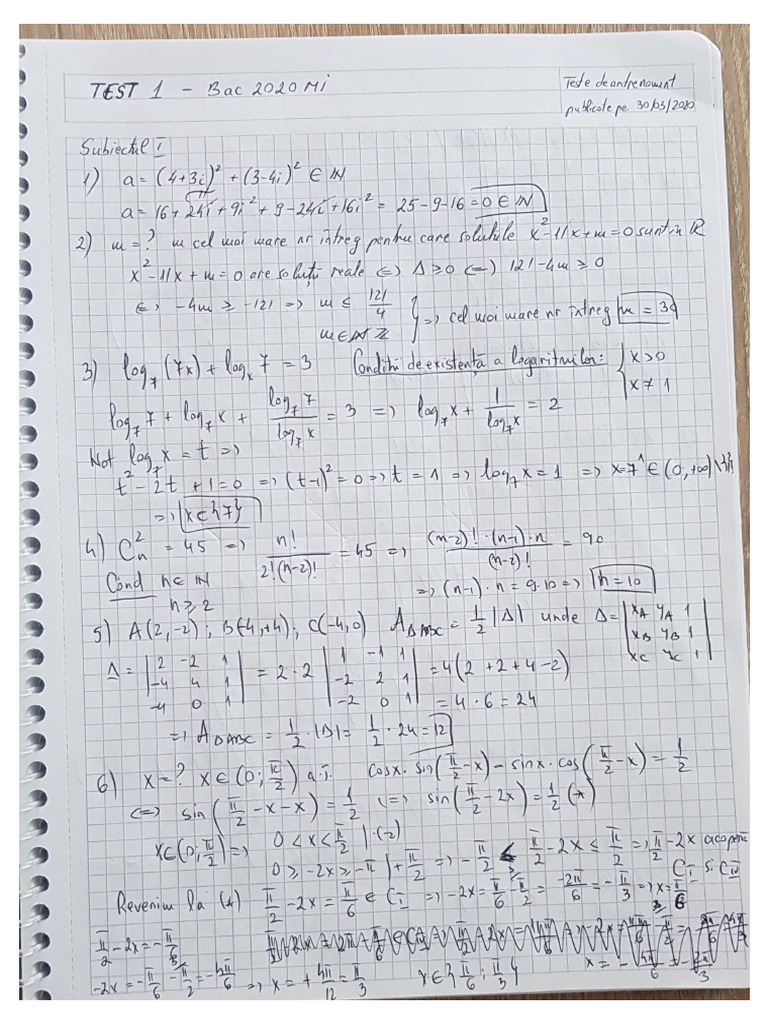 TEST 1 - Bac 2020 Mi
Teste de antrenament
publicate pe 30/03/2020
Subiectul I
1) a = (4+3i)² + (3-4i)² ∈ ℕ
a = 16 + 24i + 9i² + 9 - 24i + 16i² = 25 - 9 - 16 = 0 ∈ ℕ
2) m = ? m cel mai mare nr întreg pentru care soluțiile x² - 11x + m = 0 sunt în ℝ
x² - 11x + m = 0 are soluții reale ⇔ Δ ≥ 0 ⇔ 121 - 4m ≥ 0
⇔ -4m ≥ -121 ⇒ m ≤ 121/4 } ⇒ cel mai mare nr întreg m = 30
m ∈ ℤ
3) log₇(7x) + logₓ7 = 3 Condiții de existență a logaritmilor: { x > 0
x ≠ 1
log₇7 + log₇x + log₇7/log₇x = 3 ⇒ log₇x + 1/log₇x = 2
Not log₇x = t ⇒
t² - 2t + 1 = 0 ⇒ (t-1)² = 0 ⇒ t = 1 ⇒ log₇x = 1 ⇒ x = 7¹ ∈ (0, +∞) \ {1}
⇒ x ∈ {7}
4) Cₙ² = 45 ⇒ n!/2!(n-2)! = 45 ⇒ (n-2)!·(n-1)·n/(n-2)! = 90
Cond n ∈ ℕ
n ≥ 2
⇒ (n-1)·n = 9·10 ⇒ n = 10
5) A(2,-2); B(-4,+4); C(-4,0) A_ΔABC = 1/2 |Δ| unde Δ = | x_A y_A 1 |
| x_B y_B 1 |
| x_C y_C 1 |
Δ = | 2 -2 1 | = 2·2 | 1 -1 1 | = 4(2+2+4-2)
| -4 4 1 | | -2 2 1 |
| -4 0 1 | | -2 0 1 | = 4·6 = 24
⇒ A_ΔABC = 1/2·|Δ| = 1/2·24 = 12
6) x = ? x ∈ (0; π/2) a.î. cosx·sin(π/2 - x) - sinx·cos(π/2 - x) = 1/2
⇔ sin(π/2 - x - x) = 1/2 ⇔ sin(π/2 - 2x) = 1/2 (*)
x ∈ (0; π/2) ⇒ 0 < x < π/2 |·(-2)
0 ≥ -2x ≥ -π | + π/2 ⇒ -π/2 ≤ π/2 - 2x ≤ π/2 ⇒ π/2 - 2x acoperă
C_I și C_IV
Revenim la (*) π/2 - 2x = π/6 ∈ C_I ⇒ -2x = π/6 - π/2 = -2π/6 = -π/3 ⇒ x = π/6
π/2 - 2x = -π/6
-2x = -π/6 - π/2 = -4π/6 ⇒ x = +4π/12 = π/3 x ∈ {π/6; π/3}